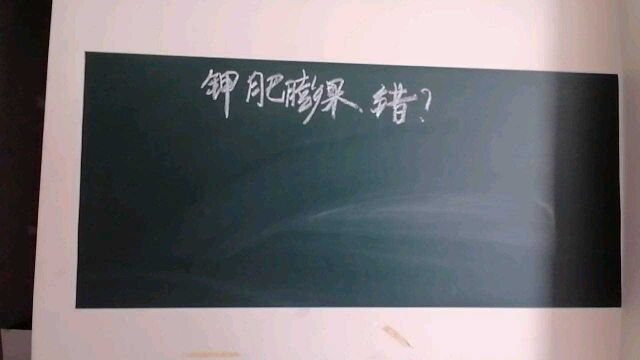 钾肥膨果、错？